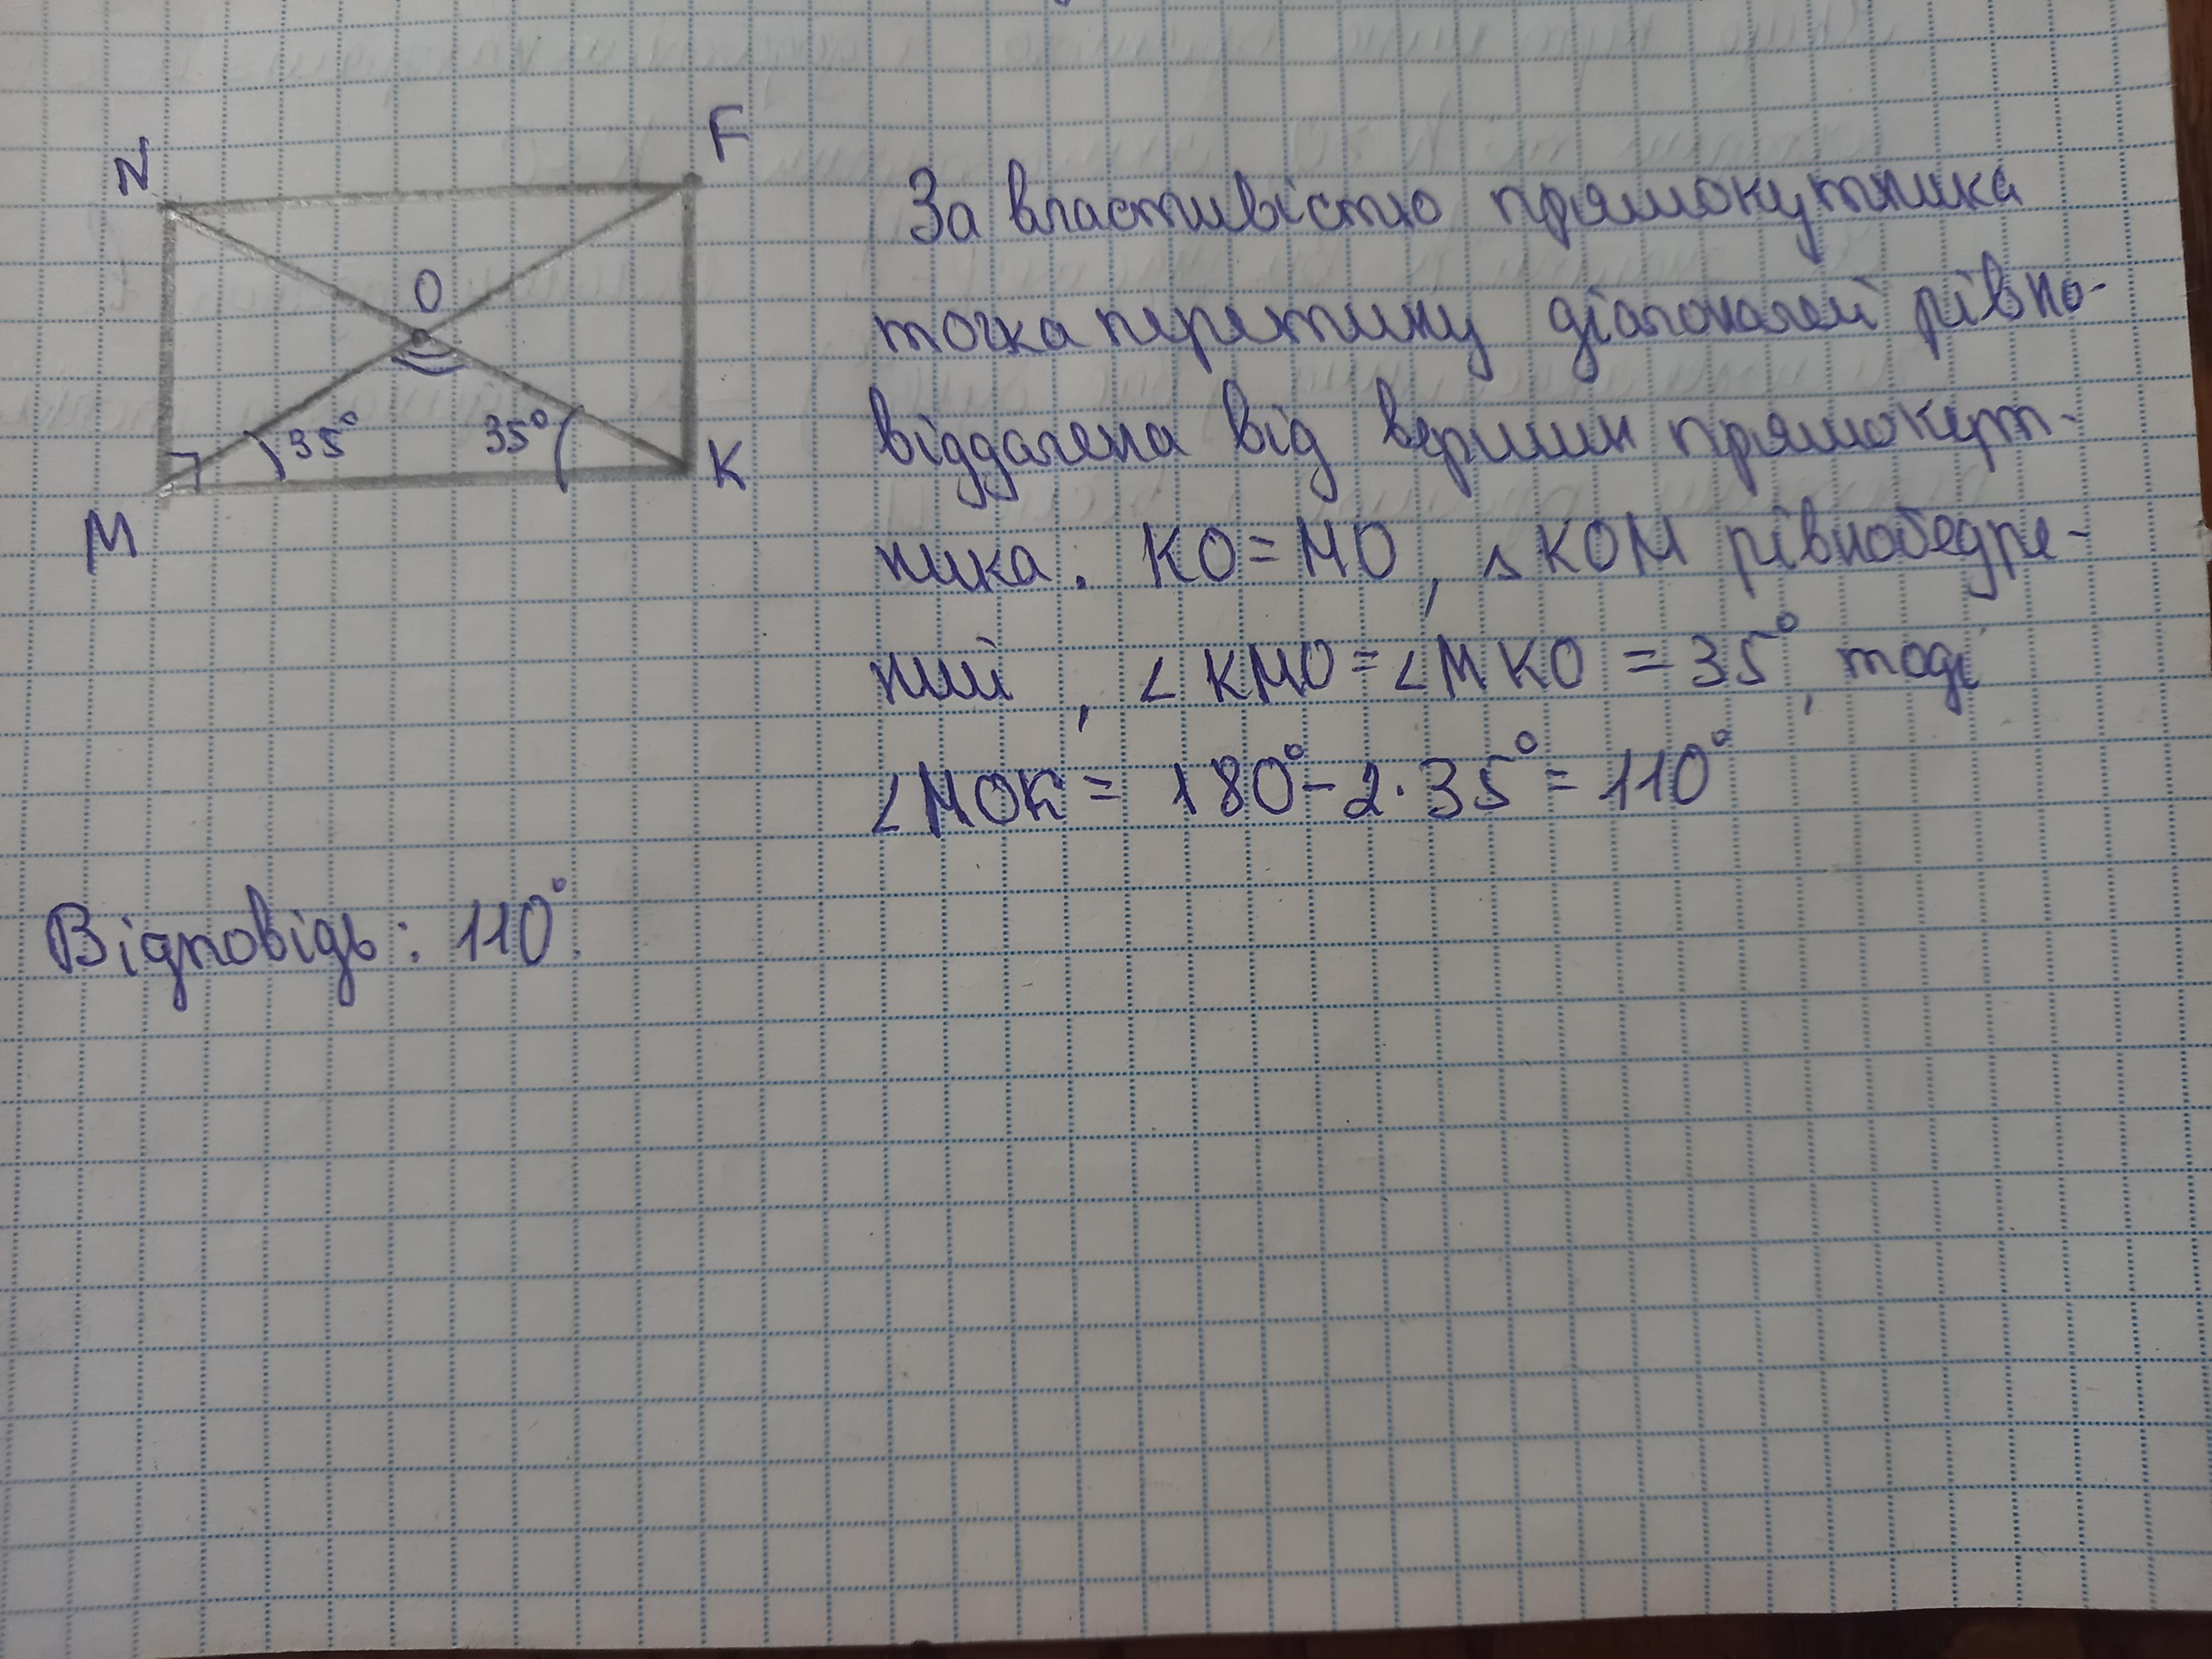 N
F
O
35°
35°
M
K
За властивістю прямокутника
точка перетину діагоналей рівно-
віддалена від вершин прямокут-
ника. KO = MO, △ KOM рівнобедре-
ний, ∠ KMO = ∠ MKO = 35°, тоді
∠ MOK = 180° - 2 · 35° = 110°
Відповідь: 110°.